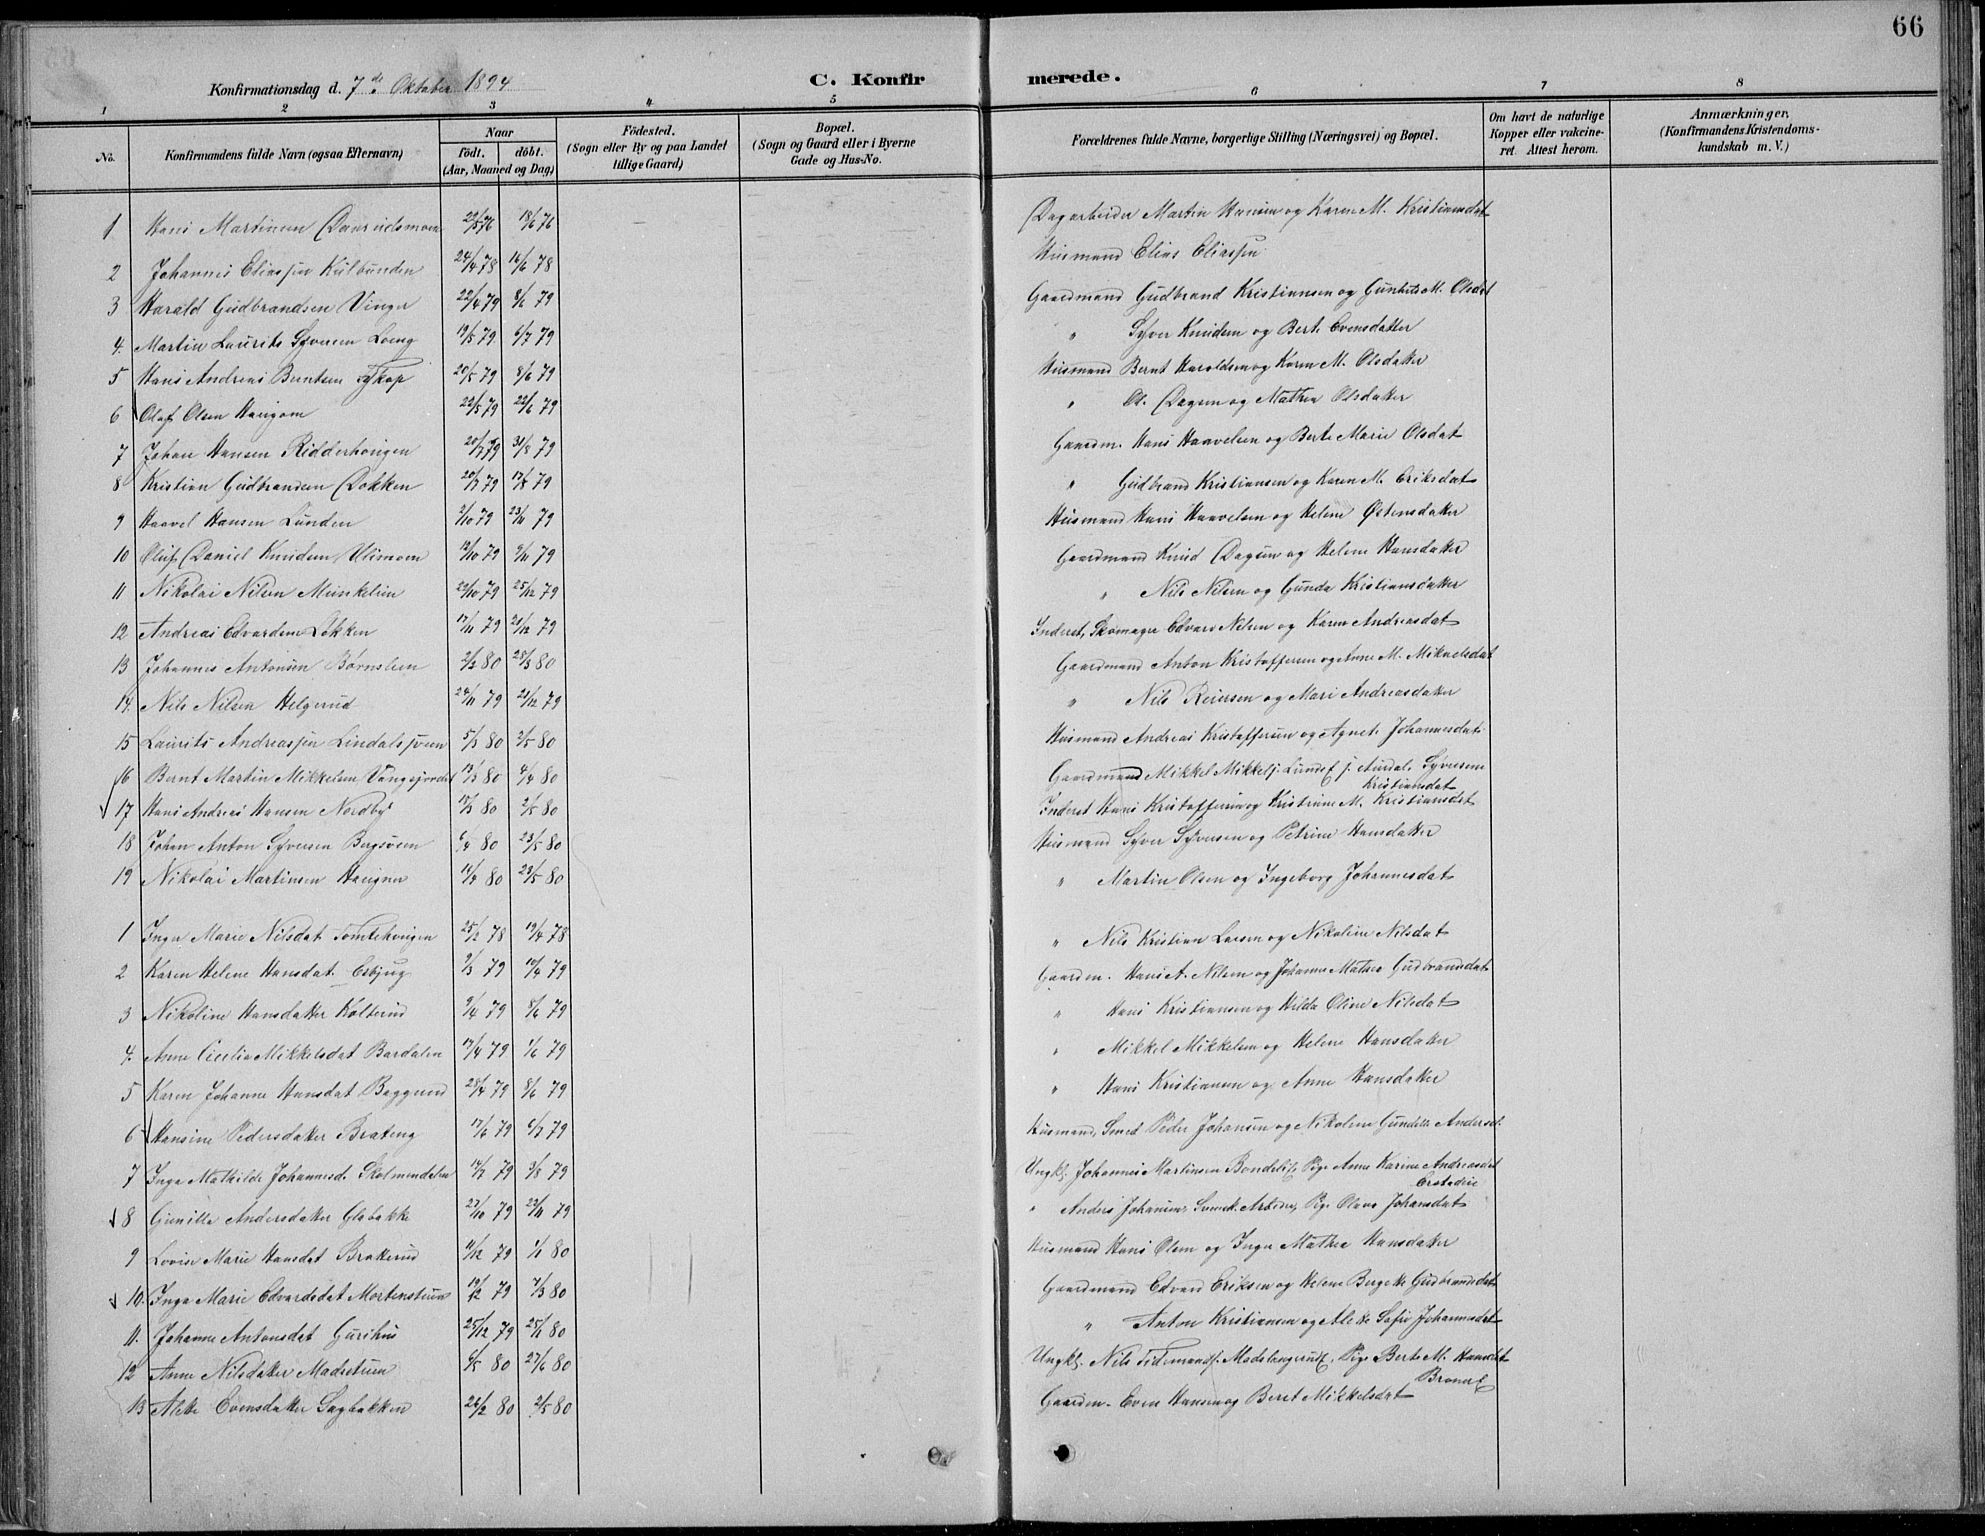 66
Konfirmationsdag d. 7de Oktober 1894
C. Konfirmerede.
1 2 3 4 5 6 7 8
No.
Konfirmandens fulde Navn (ogsaa Efternavn)
Naar
født. døbt.
(Aar, Maaned og Dag)
Födested.
(Sogn eller By og paa Landet
tillige Gaard)
Bopæl.
(Sogn og Gaard eller i Byerne
Gade og Hus-No.
Forældrenes fulde Navne, borgerlige Stilling (Næringsvei) og Bopæl.
Om havt de naturlige
Kopper eller vakcine-
ret. Attest herom.
Anmærkninger.
(Konfirmandens Kristendoms-
kundskab m. V.)
1 Hans Martinsen 18/6 76 Dagarbeider Martin Hansen og Karen M. Kristiansdat
2 Johannes Eliassen 24/4 78 16/6 78 Husmand Elias Eliassen
3 Harald Gudbrandsen Vinger 22/4 79 8/6 79 Gaardmand Gudbrand Kristiansen og M. Olsdat
4. Martin Laurits Syversen Loeng 19/5 79 6/7 79 " Syver Knudsen og Berte Evensdatter
5 Hans Andreas Berntsen 20/5 79 8/6 79 Husmand Bernt Haraldsen og Karen M. Olsdatter
6 Olaf Olsen Haugom 22/5 79 22/6 79 " Ol. Dagsen og Mathea Olsdatter
7 Johan Hansen Ridderhougen 20/7 79 31/8 79 Gaardm. Hans Haavelsen og Berte Marie Olsdat
8 Kristian Gudbrandsen Dokken 20/7 79 17/8 79 " Gudbrand Kristiansen og Karen M. Eriksdat
9 Haavel Hansen Lunden 2/10 79 23/11 79 Husmand Hans Haavelsen og Helene Østensdatter
10 Oluf Daniel Knudsen Ulimoen 12/10 79 9/11 79 Gaardmand Knud Dagsen og Helene Hansdatter
11 Nikolai Nilsen 22/10 79 25/12 79 " Nils Nilsen og Gunda Kristiansdatter
12 Andreas Edvardsen Løkken 17/11 79 21/12 79 Inderst, Skomager Edvard Nilsen og Karen Andreasdat
13 Johannes Antonsen Børnslien 2/2 80 28/3 80 Gaardmand Anton Kristoffersen og Anne M. Mikaelsdat
14. Nils Nilsen Helgerud 24/11 79 21/12 79 " Nils Reiersen og Mari Andreasdatter
15 Laurits Andreassen 5/3 80 2/5 80 Husmand Andreas Kristoffersen og Agnete Johannesdat
16 Bernt Martin Mikkelsen Vangsjordet 13/3 80 4/4 80 Gaardmand Mikkel Mikkels. Syversen
Kristiansdat
17 Hans Andreas Hansen Nordby 17/3 80 2/5 80 Inderst Hans Kristoffersen og Kristine M. Kristiansdat
18 Johan Anton Syversen 6/4 80 23/5 80 Husmand Syver Syversen og Petrine Hansdatter
19 Nikolai Martinsen Haugen 80 23/5 80 " Martin Olsen og Ingeborg Johannesdat
1 Inger Marie Nilsdat Tomtehougen 25/2 78 19/4 78 " Nils Kristian Larsen og Nikoline Nilsdat
2 Karen Helene Hansdat. Esbjug 9/3 79 19/4 79 Gaardm. Hans A. Nilsen og Johanne Mathea Gudbransdat
3 Nikoline Hansdatter Kolterud 9/4 79 8/6 79 " Hans Kristiansen og Hilda Oline Nilsdat
4. Anne Cicelia Mikkelsdat Bardalen 17/4 79 1/6 79 " Mikkel Mikkelsen og Helene Hansdatter
5 Karen Johanne Hansdat Baggerud 28/4 79 8/6 79 " Hans Kristiansen og Anne Hansdatter
6 Hansine Pedersdatter Brateng 17/6 79 6/7 79 Husmand, Smed Peder Johansen og Nikoline Gundelle Andersd.
7 Inga Mathilde Johannesd. Skolmendalen 14/7 79 3/8 79 Ungkl. Johannes Martinsen Bondelie Pige Anne Karine Andreasdat
8 Gunille Andersdatter Glabakke 27/10 79 23/11 79 " Anders Johansen, Svensk Arbeider, Pige Olava Johansdat
9 Lovise Marie Hansdat Brakerud 11/12 79 1/1 80 Husmand Hans Olsen og Inger Mathea Hansdatter
10. Inga Marie Edvardsdat Mortenstuen 19/12 79 7/3 80 Gaardmand Edvard Eriksen og Helene Bergette Gudbransdat
11. Johanne Antonsdat Gurihus 25/12 79 25/1 80 " Anton Kristiansen og Alette Sofie Johannesdat
12 Anne Nilsdatter Madsstuen 6/5 80 27/6 80 Ungkl. Nils Pige Berte M. Hansdat
13 Alette Evensdatter Sagbakken 26/2 80 2/5 80 Gaardm. Even Hansen og Beret Mikkelsdat